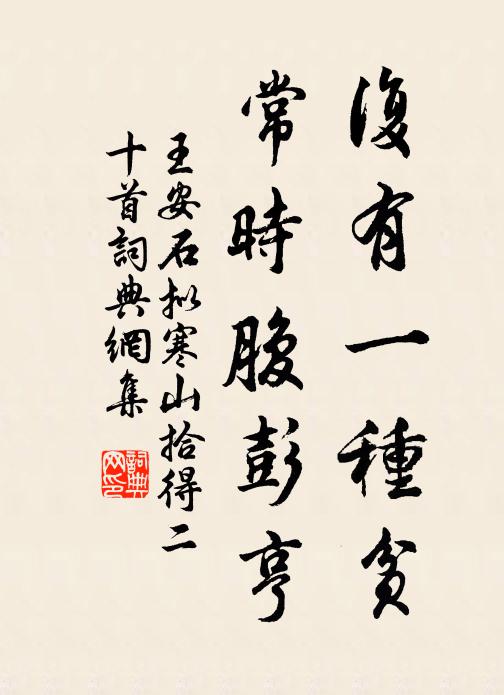 復有一種貧
常時腹彭亨
王安石拟寒山拾得二
十首詞典網集
詞典
网印